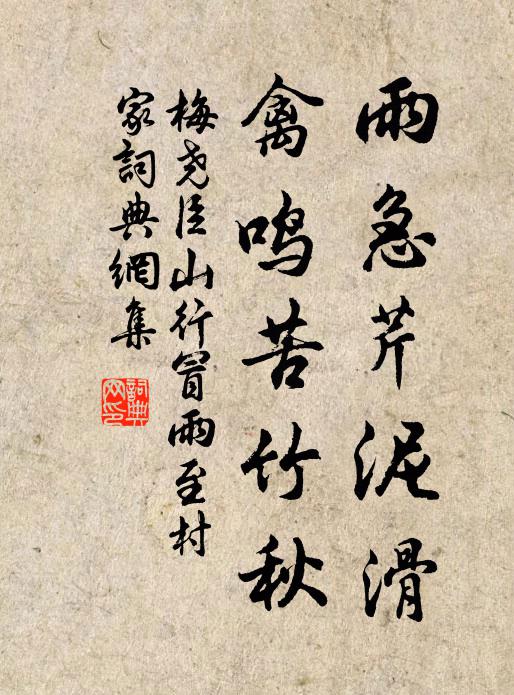 雨急芹泥滑
禽鸣苦竹秋
梅尧臣山行冒雨至村
家詞典網集
詞典
网印